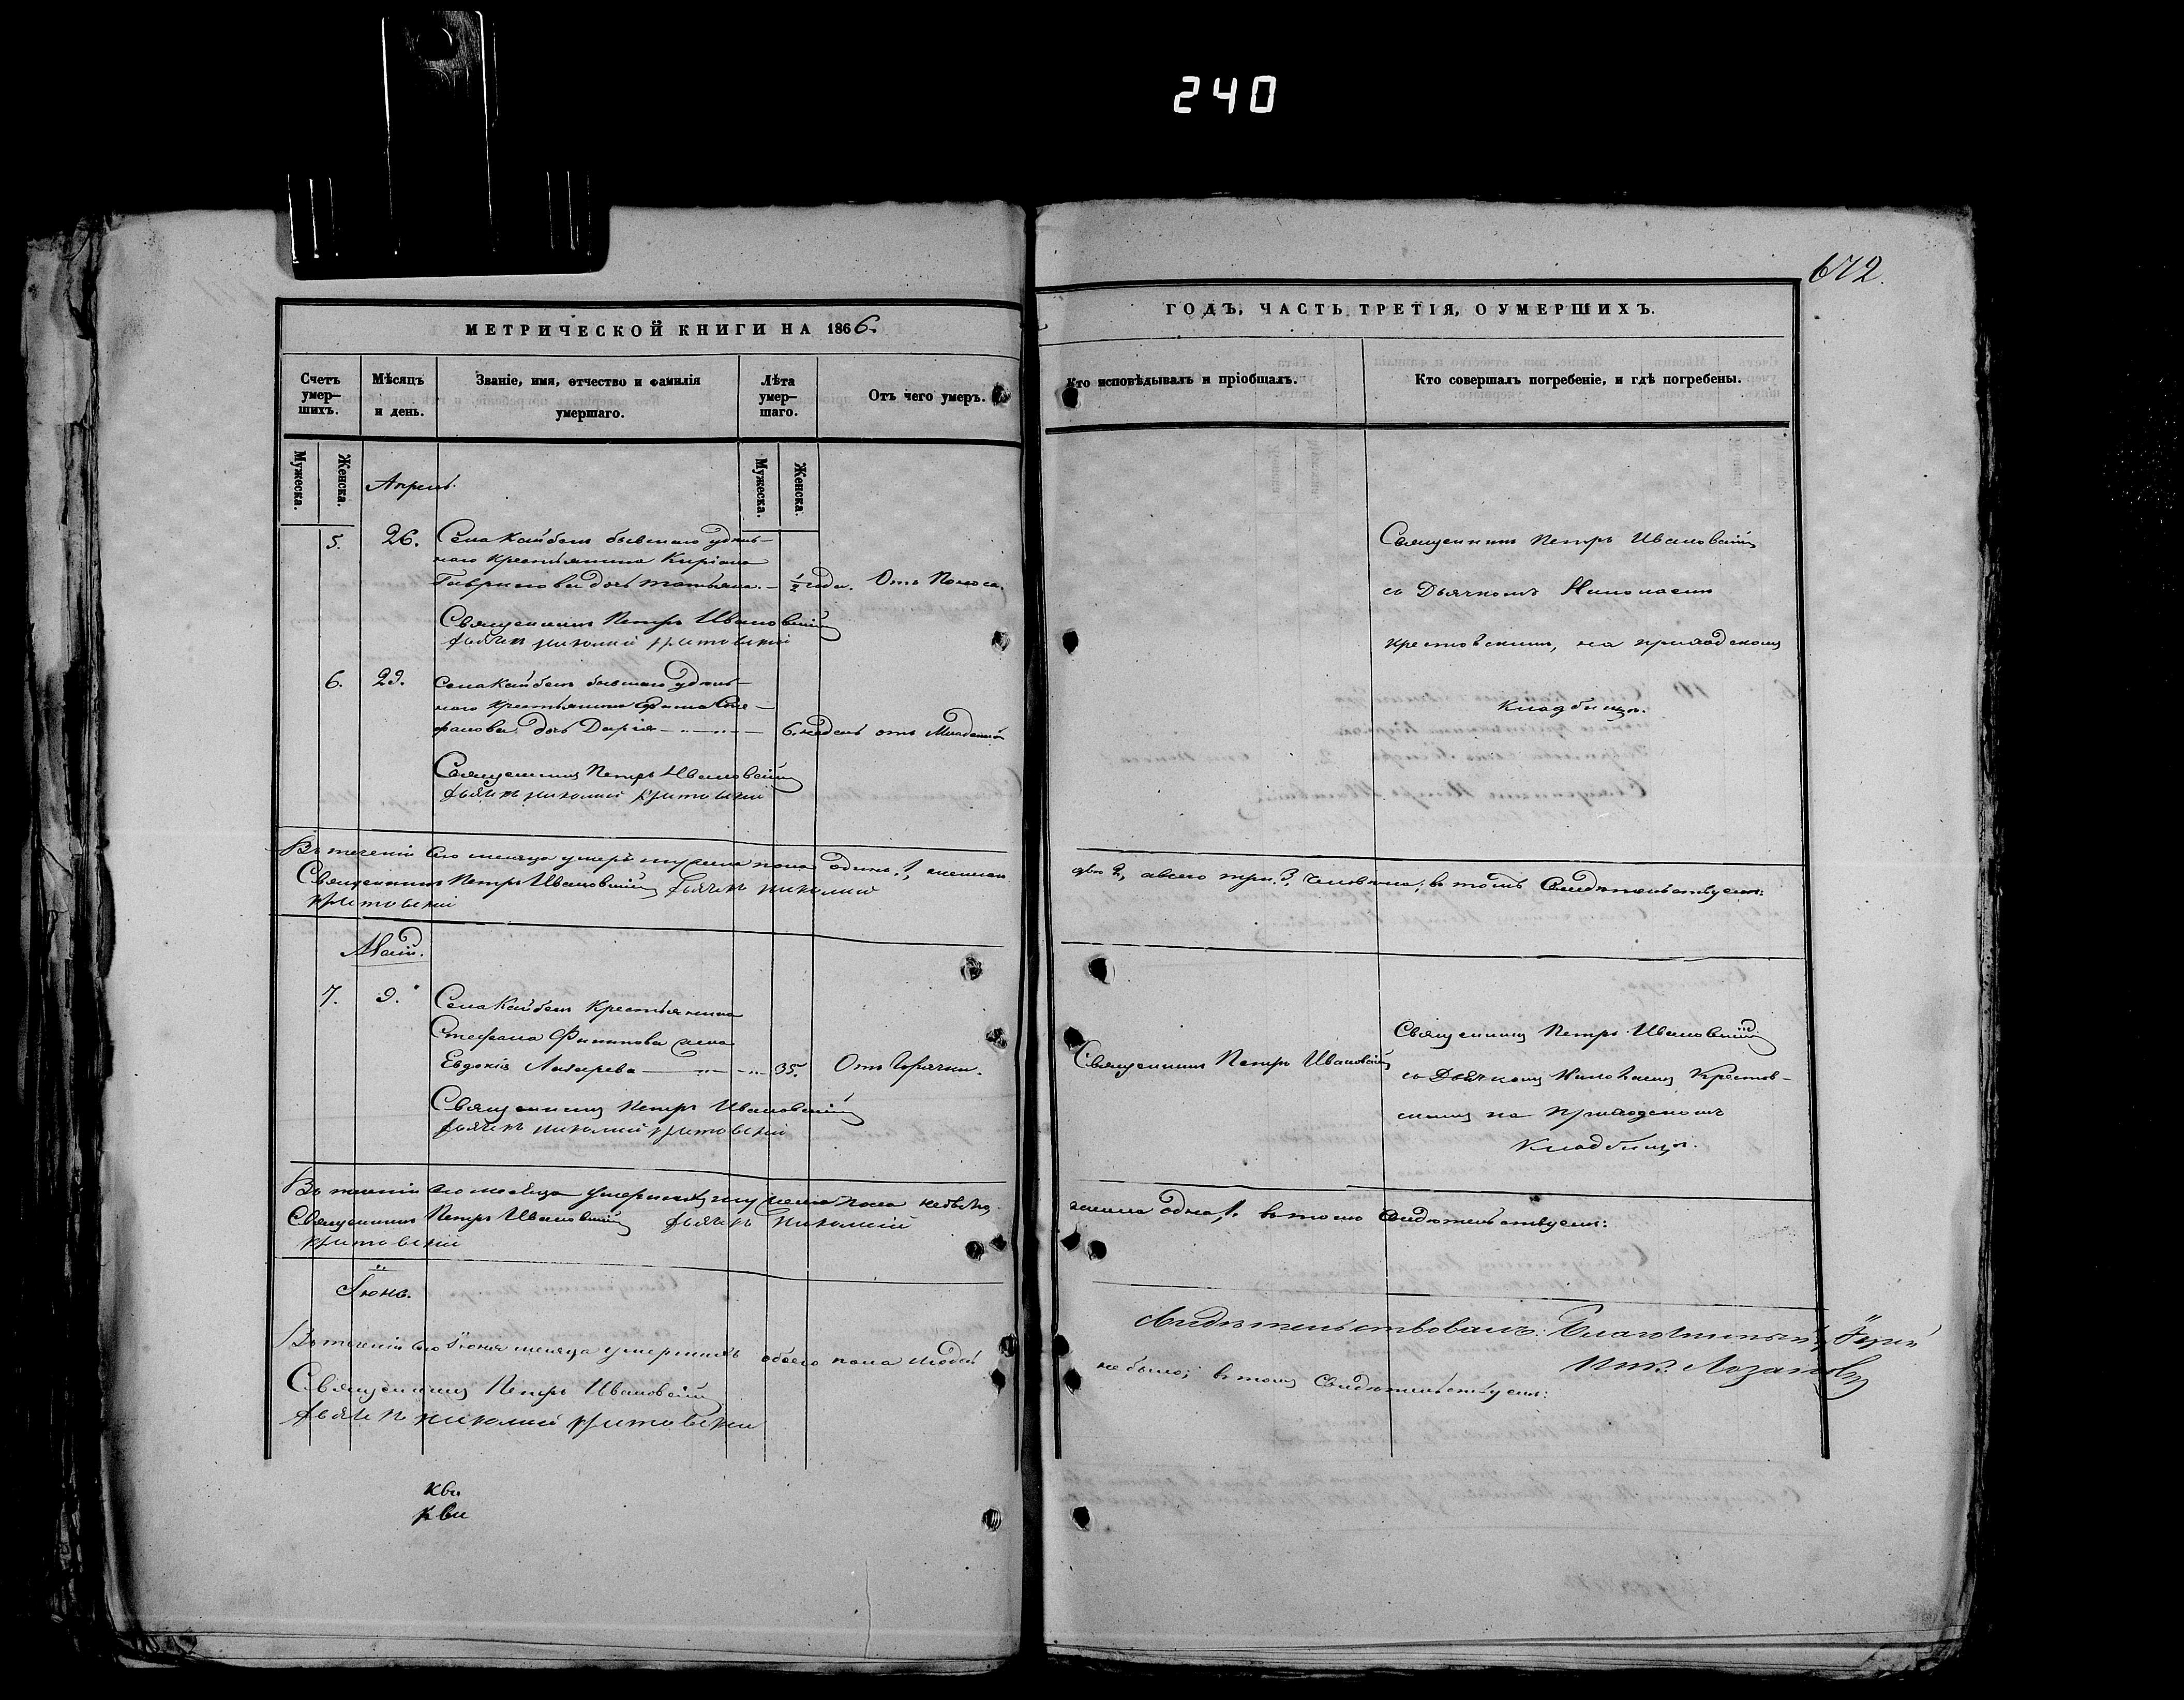 240
672.
МЕТРИЧЕСКОЙ КНИГИ НА 1866.
Счетъ умер-шихъ.
Мѣсяцъ и день.
Званіе, имя, отчество и фамилія умершаго.
Лѣта умер-шаго.
Отъ чего умеръ.
Мужеска.
Женска.
Мужеска.
Женска.
Апрель.
5. 26. Села Кайбелъ бывшаго удѣль-
наго крестьянина Киріана
Гаврилова дочь Татьяна. — ½ года. Отъ Поноса.
Священникъ Петръ Ивановскій
Дьячекъ Николай Крестовскій
6. 29. Села Кайбелъ бывшаго удѣль-
наго крестьянина Сте-
фанова дочь Дарія — 6. недель отъ Младенч.
Священникъ Петръ Ивановскій
Дьячекъ Николай Крестовскій
Въ теченіи сего месяца умеръ мужеска пола одинъ. 1, женска
Священникъ Петръ Ивановскій Дьячекъ Николай
Крестовскій
Май.
7. 9. Села Кайбелъ Крестьянина
Стефана Филипова жена
Евдокія Лазарева — 35. Отъ Горячки.
Священникъ Петръ Ивановскій
Дьячекъ Николай Крестовскій
Въ теченіи сего месяца умершихъ мужеска пола небыло,
Священникъ Петръ Ивановскій Дьячекъ Николай
Крестовскій
Іюнь.
Въ теченіи сего Іюня месяца умершихъ обоего пола людей
Священникъ Петръ Ивановскій
Дьячекъ Николай Крестовскій
ГОДЪ, ЧАСТЬ ТРЕТІЯ, О УМЕРШИХЪ.
Кто исповѣдывалъ и пріобщалъ.
Кто совершалъ погребеніе, и гдѣ погребены.
Священникъ Петръ Ивановскій
съ Дьячкомъ Николаемъ
Крестовскимъ, на приходскомъ
кладбищѣ.
двѣ 2, а всего три. 3, человека; въ томъ Свидѣтельствуемъ:
Священникъ Петръ Ивановскій
Священникъ Петръ Ивановскій
съ Дьячкомъ Николаемъ Крестов-
скимъ на Приходскомъ
Кладбищѣ.
женска одна, 1. въ томъ Свидѣтельствуемъ:
Свидѣтельствовалъ: Благочинный, Іерей
не было; въ томъ Свидѣтельствуемъ: